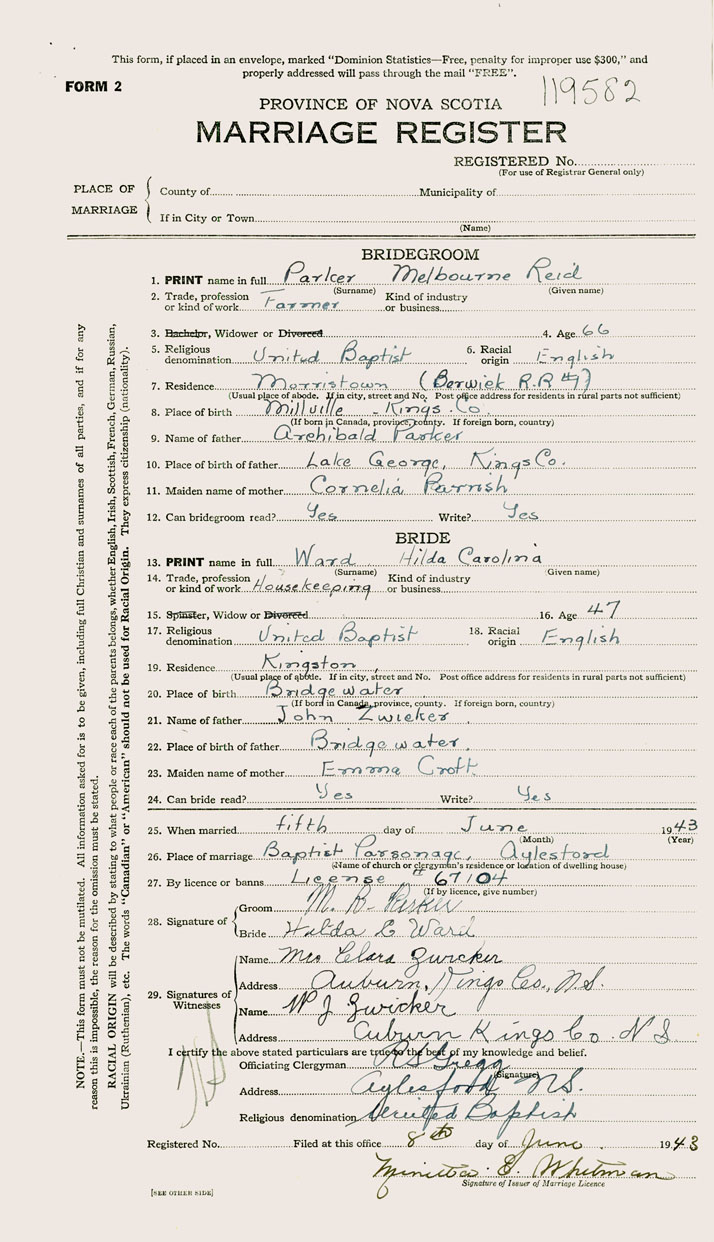 This form, if placed in an envelope, marked "Dominion Statistics—Free, penalty for improper use $300," and
properly addressed will pass through the mail "FREE".
FORM 2
119582
PROVINCE OF NOVA SCOTIA
MARRIAGE REGISTER
REGISTERED No.
(For use of Registrar General only)
PLACE OF MARRIAGE
County of Municipality of
If in City or Town
(Name)
BRIDEGROOM
1. PRINT name in full Parker Melbourne Reid
(Surname) (Given name)
2. Trade, profession or kind of work Farmer Kind of industry or business
3. Bachelor, Widower or Divorced 4. Age 66
5. Religious denomination United Baptist 6. Racial origin English
7. Residence Morristown (Berwick R.R #1)
(Usual place of abode. If in city, street and No. Post office address for residents in rural parts not sufficient)
8. Place of birth Millville - Kings Co.
(If born in Canada, province, county. If foreign born, country)
9. Name of father Archibald Parker
10. Place of birth of father Lake George, Kings Co.
11. Maiden name of mother Cornelia Parrish
12. Can bridegroom read? Yes Write? Yes
BRIDE
13. PRINT name in full Ward Hilda Carolina
(Surname) (Given name)
14. Trade, profession or kind of work Housekeeping Kind of industry or business
15. Spinster, Widow or Divorced 16. Age 47
17. Religious denomination United Baptist 18. Racial origin English
19. Residence Kingston
(Usual place of abode. If in city, street and No. Post office address for residents in rural parts not sufficient)
20. Place of birth Bridgewater
(If born in Canada, province, county. If foreign born, country)
21. Name of father John Zwicker
22. Place of birth of father Bridgewater.
23. Maiden name of mother Emma Croft
24. Can bride read? Yes Write? Yes
25. When married fifth day of June 1943
(Month) (Year)
26. Place of marriage Baptist Parsonage, Aylesford
(Name of church or clergyman's residence or location of dwelling house)
27. By licence or banns License # 67104
(If by licence, give number)
28. Signature of
Groom M. R. Parker
Bride Hilda C Ward
29. Signatures of Witnesses
Name Mrs Clara Zwicker
Address Auburn, Kings Co., N.S.
Name W J Zwicker
Address Auburn Kings Co. N S.
I certify the above stated particulars are true to the best of my knowledge and belief.
Officiating Clergyman RS Gregg
(Signature)
Address Aylesford NS.
Religious denomination United Baptist
Registered No. Filed at this office 8th day of June 1943
Whitman
Signature of Issuer of Marriage Licence
[SEE OTHER SIDE]
NOTE.—This form must not be mutilated. All information asked for is to be given, including full Christian and surnames of all parties, and if for any
reason this is impossible, the reason for the omission must be stated.
RACIAL ORIGIN will be described by stating to what people or race each of the parents belongs, whether English, Irish, Scottish, French, German, Russian,
Ukrainian (Ruthenian), etc. The words "Canadian" or "American" should not be used for Racial Origin. They express citizenship (nationality).